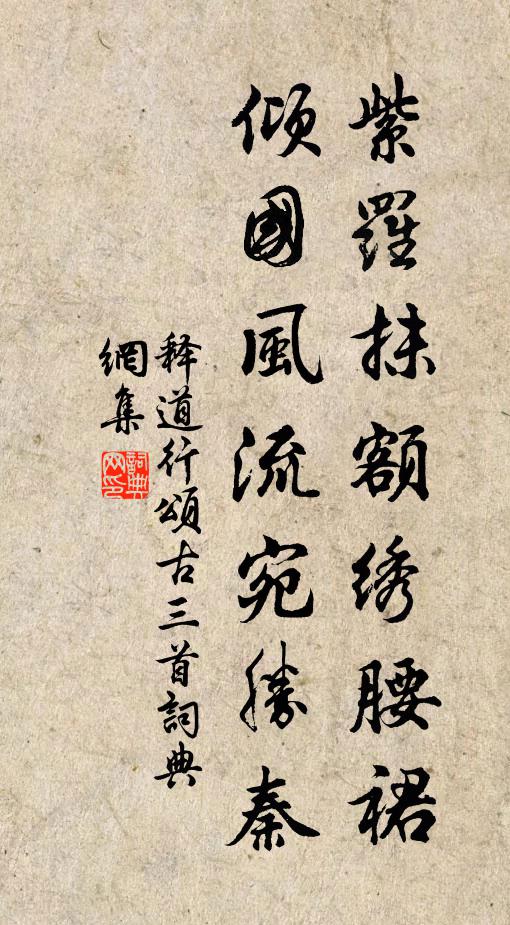 紫羅抹額绣腰裙
傾國風流宛勝秦
释道行頌古三首詞典
網集
詞典網印